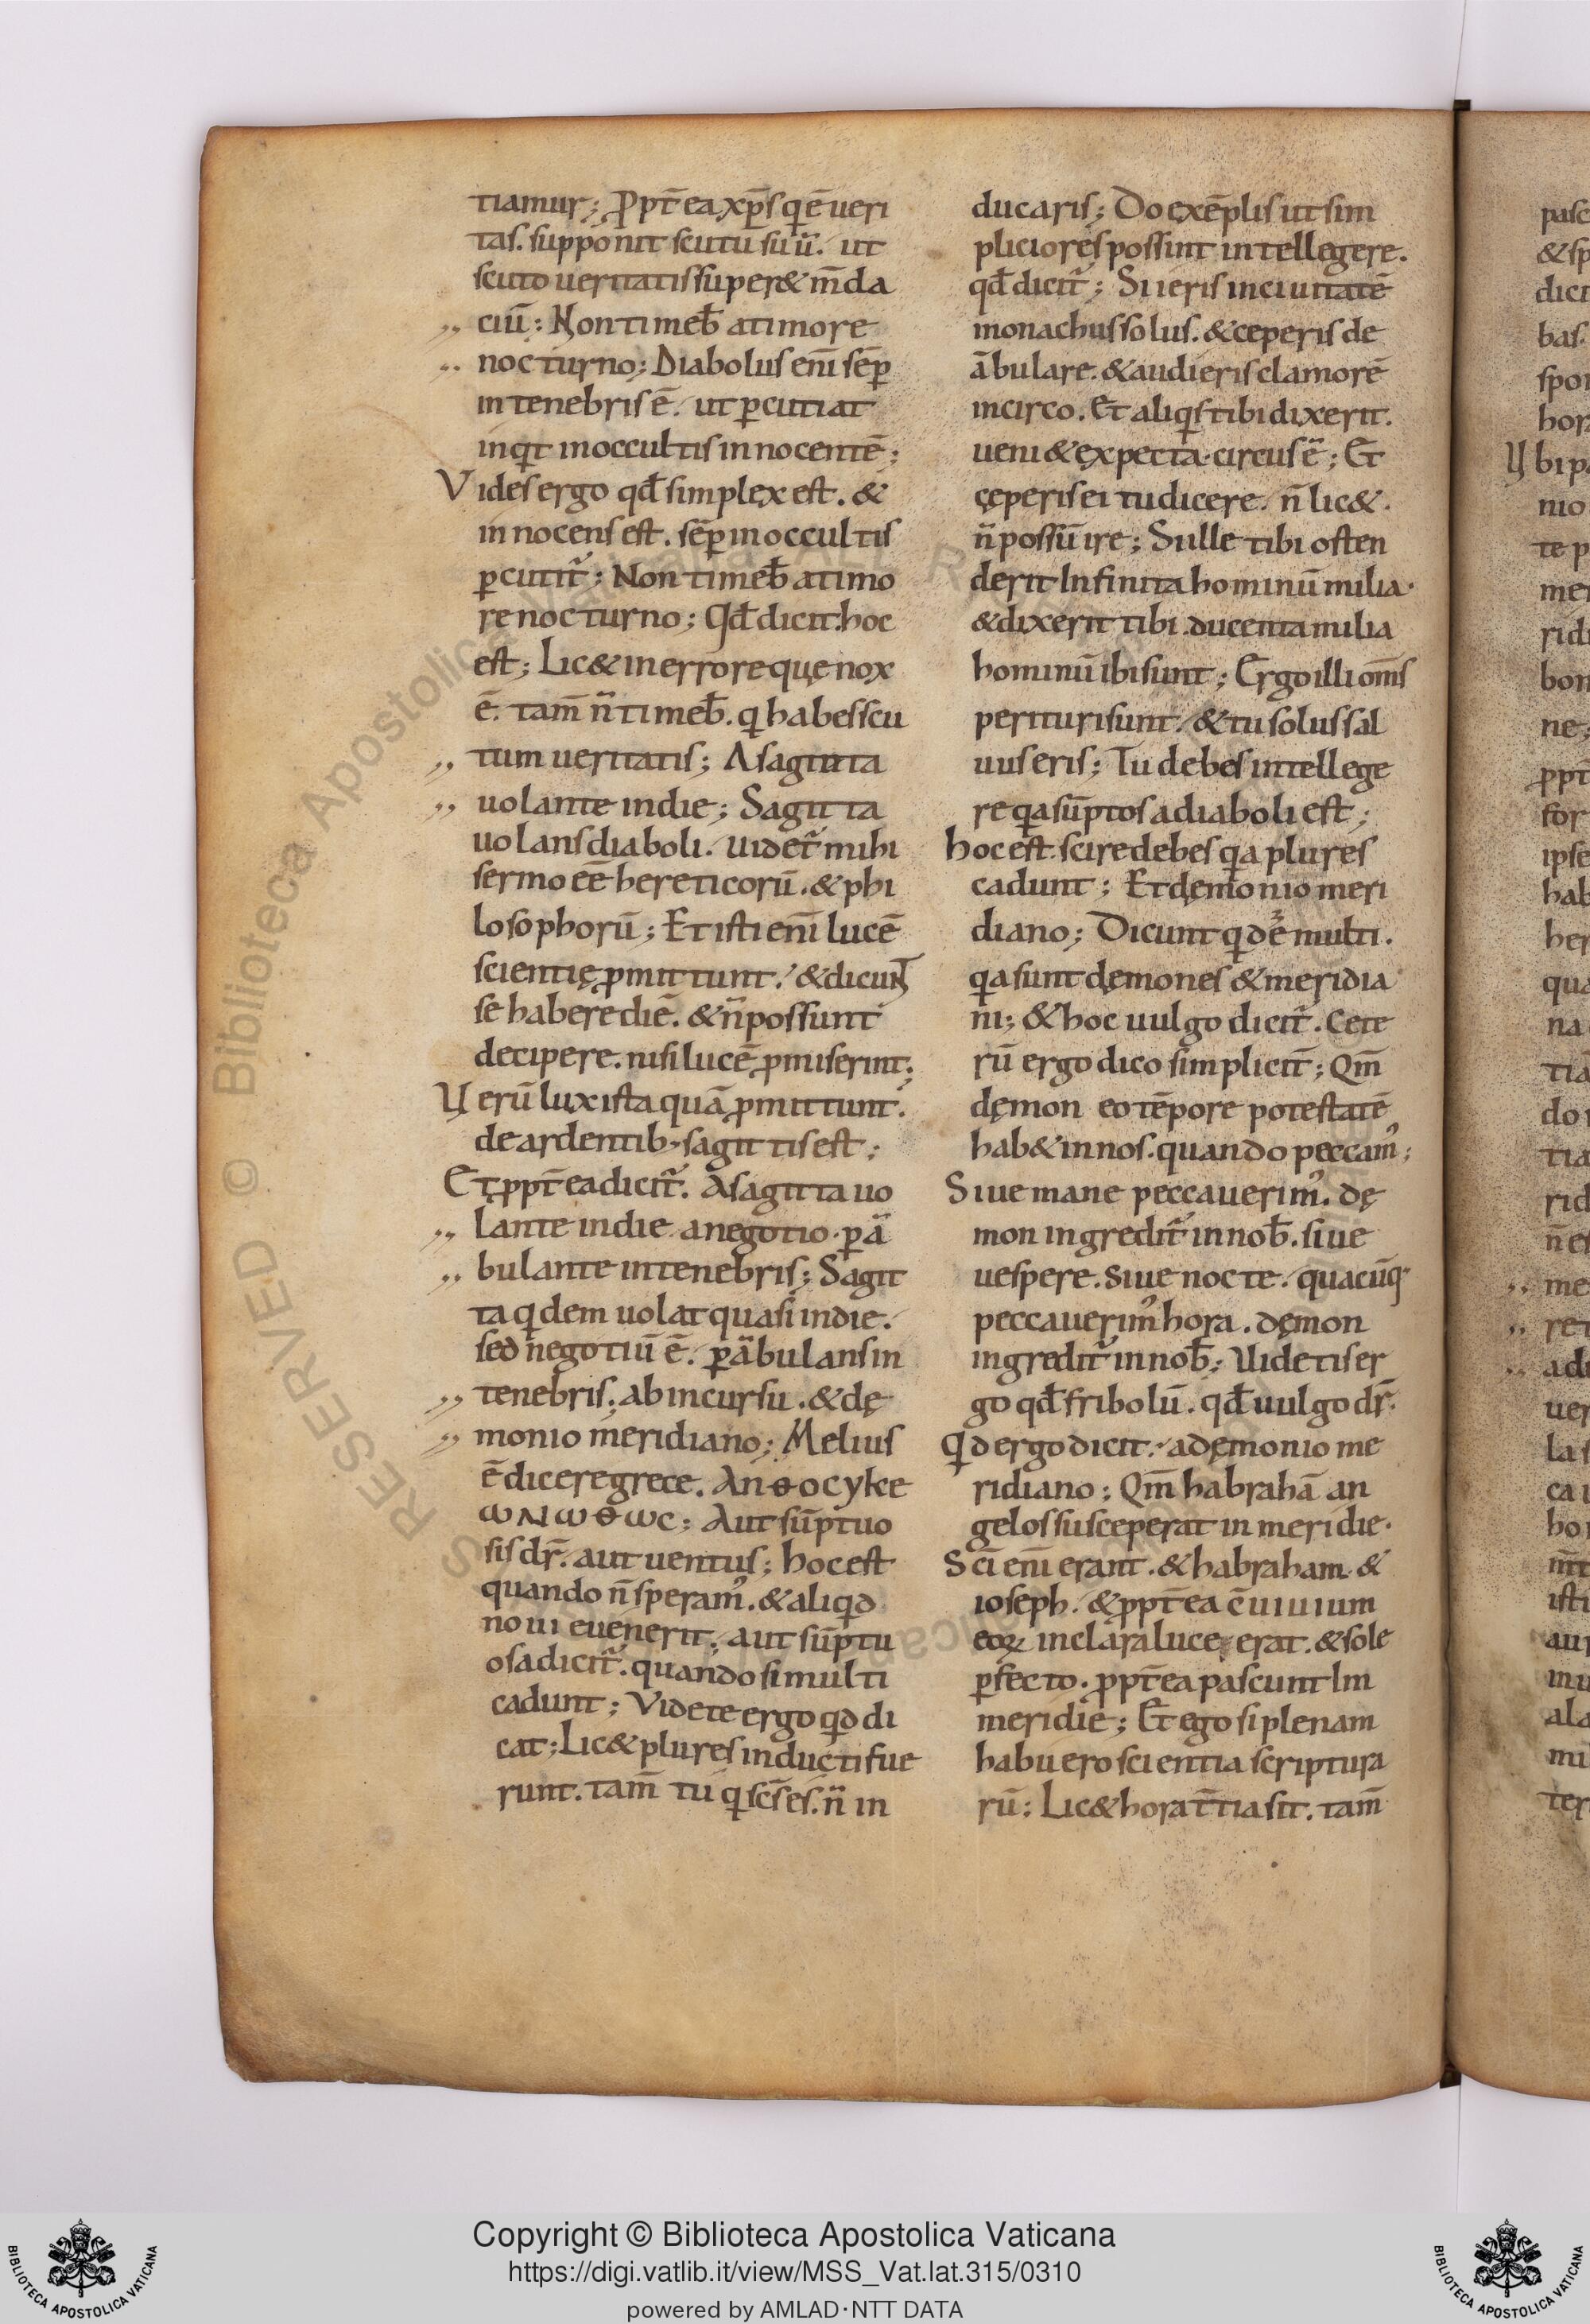 tiamur; ꝓpt̄ ea xp̄s qꝫ ē ueri
tas. supponit scutū suū. ut
scuto ueritatis super& m̄da
ciū: Non timeb̄ a timore
nocturno; Diabolus enī sēꝑ
in tenebris ē. ut ꝑcutiat
inqt in occultis innocentē;
Vides ergo qd̄ simplex est. &
innocens est. sēꝑ in occultis
ꝑcutit̃: Non timeb̄ a timo
re nocturno; Qd̄ dicit. hoc
est; Lic& in errore quę nox
ē. tam̄ n̄ timeb̄. q habes scu
tum ueritatis; A sagitta
uolante in die; Sagitta
uolans diaboli. uidet̃ mihi
sermo eē hereticorū. & phi
losophorū; Et isti enī lucē
scientię ꝓmittunt. & dicunt
se habere diē. & n̄ possunt
decipere. nisi lucē ꝓmiserint;
Uerū lux ista quā ꝓmittunt.
de ardentib; sagittis est;
Et ꝓpt̄ ea dicit̃. A sagitta uo
lante in die a negotio ꝑā
bulante in tenebris; Sagit
ta qdem uolat quasi in die.
sed negotiū ē. ꝑābulans in
tenebris; ab incursu. & dę
monio meridiano; Melius
ē dicere grece. Anθocyke
ωNωθωc; Aut sūptuo
sis dr̄. aut uentus; hoc est
quando n̄ speram᾽. & aliqd
noui euenerit; aut sūptu
osa dicit̃. quando si multi
cadunt; Videte ergo qd di
cat; Lic& plures inducti fue
runt. tam̄ tu q sc̄s es. n̄ in
ducaris; Do exēplis ut sim
pliciores possint intellegere.
qd̄ dicit̃; Si ieris in ciuitatē
monachus solus. & ceperis de
ābulare. & audieris clamorē
in circo. Et aliqs tibi dixerit.
ueni & expecta. circus ē; Et
ceperis ei tu dicere. n̄ lic&.
n̄ possū ire; Si ille tibi osten
derit Infinita hominū milia.
& dixerit tibi. ducenta milia
hominū ibi sunt; Ergo illi om̄s
perituri sunt. & tu solus sal
uus eris; Tu debes intellege
re qa sūptos a diaboli est;
hoc est. scire debes qa plures
cadunt; Et dęmonio meri
diano; Dicunt qdē multi.
qa sunt dęmones & meridia
ni; & hoc uulgo dicit̃. Cete
rū ergo dico simplicit̄; Qm̄
dęmon eo tēpore potestatē
hab& in nos. quando peccam᾽;
Siue mane peccauerim᾽. dę
mon ingredit̃ in nob̄. siue
uespere. siue nocte. quacūq;
peccauerim᾽ hora. dęmon
ingredit̃ in nob̄; Uidetis er
go qd̄ fribolū. qd̄ uulgo dr̄.
Qd ergo dicit. a dęmonio me
ridiano; Qm̄ habrahā an
gelos susceperat in meridie.
Sc̄i enī erant. & habraham. &
ioseph. & ꝓpt̄ ea c̄uiuium
eoꝝ in clara luce erat. & sole
ꝑfecto. ꝓpt̄ ea pascunt In
meridie; Et ego si plenam
habuero scientia scriptura
rū; Lic& hora t̄tia sit. tam̄
Copyright © Biblioteca Apostolica Vaticana
https://digi.vatlib.it/view/MSS_Vat.lat.315/0310
powered by AMLAD·NTT DATA